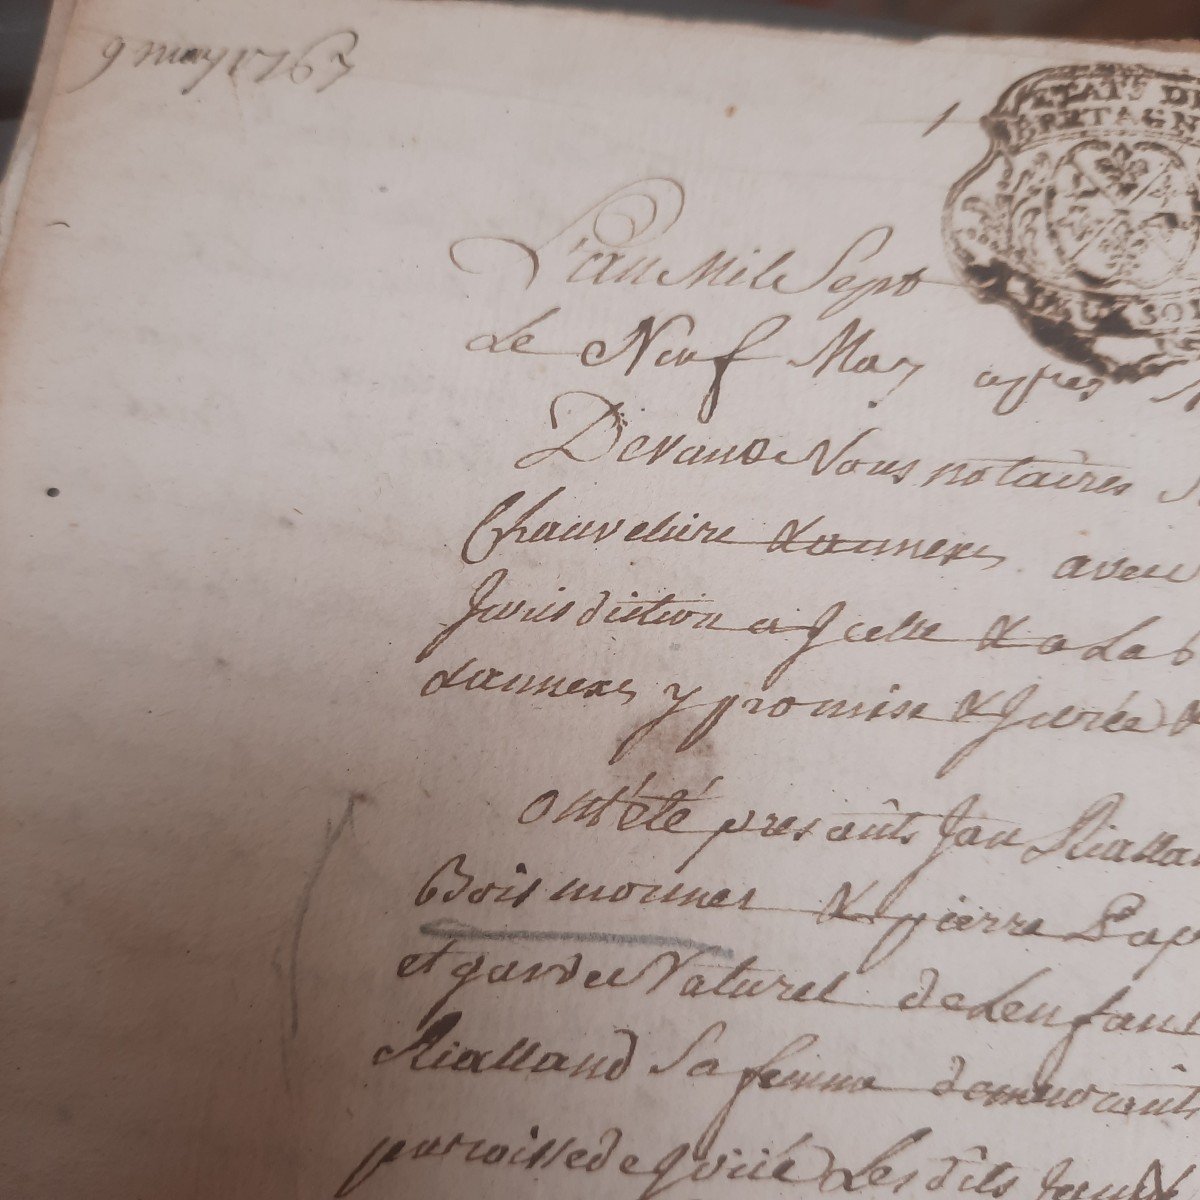 9 may 1763
1
ETATS DE
BRETAGN
DEUX SO
L'an Mil Sept
Le Neuf May apres
Devand Nous notaires
Chauveliere & annexes avec
Jurisdiction a Jcelle & a La
& annexes y promise & Jurée
ont été presents Jan Rialla
Boismounier & pierre Pap
et garde Naturel de Lenfant
Rialland Sa femme demeurants
paroisse de Les dits Jan &